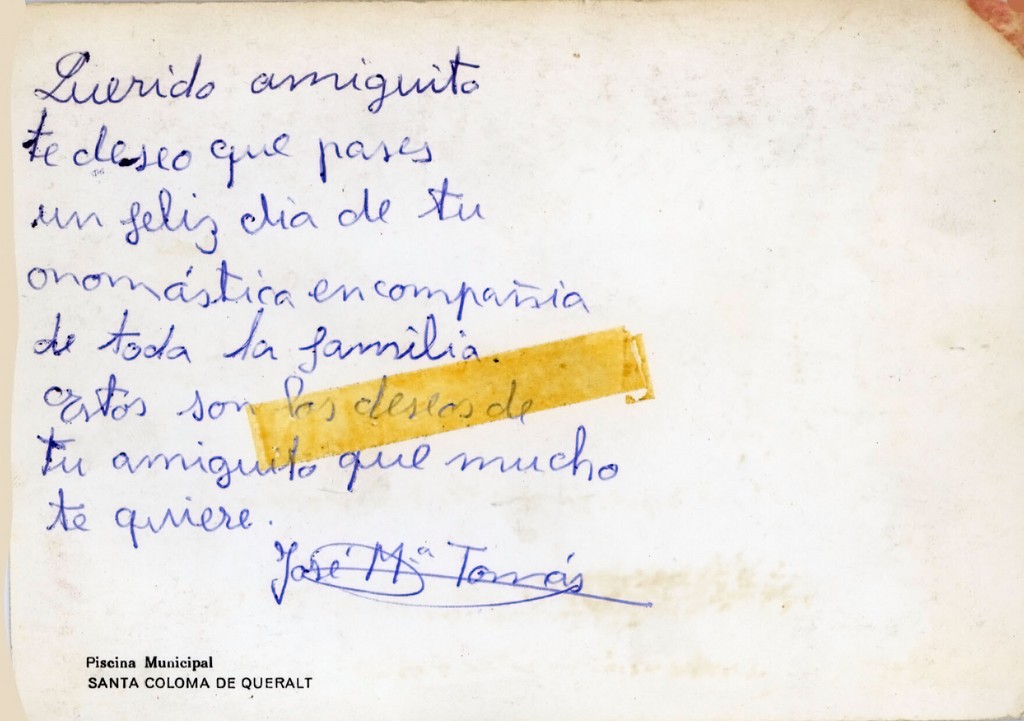 Querido amiguito
te deseo que pases
un feliz dia de tu
onomástica en compañia
de toda la familia.
Estos son los deseos de
tu amiguito que mucho
te quiere.
José Mª Tomás
Piscina Municipal
SANTA COLOMA DE QUERALT